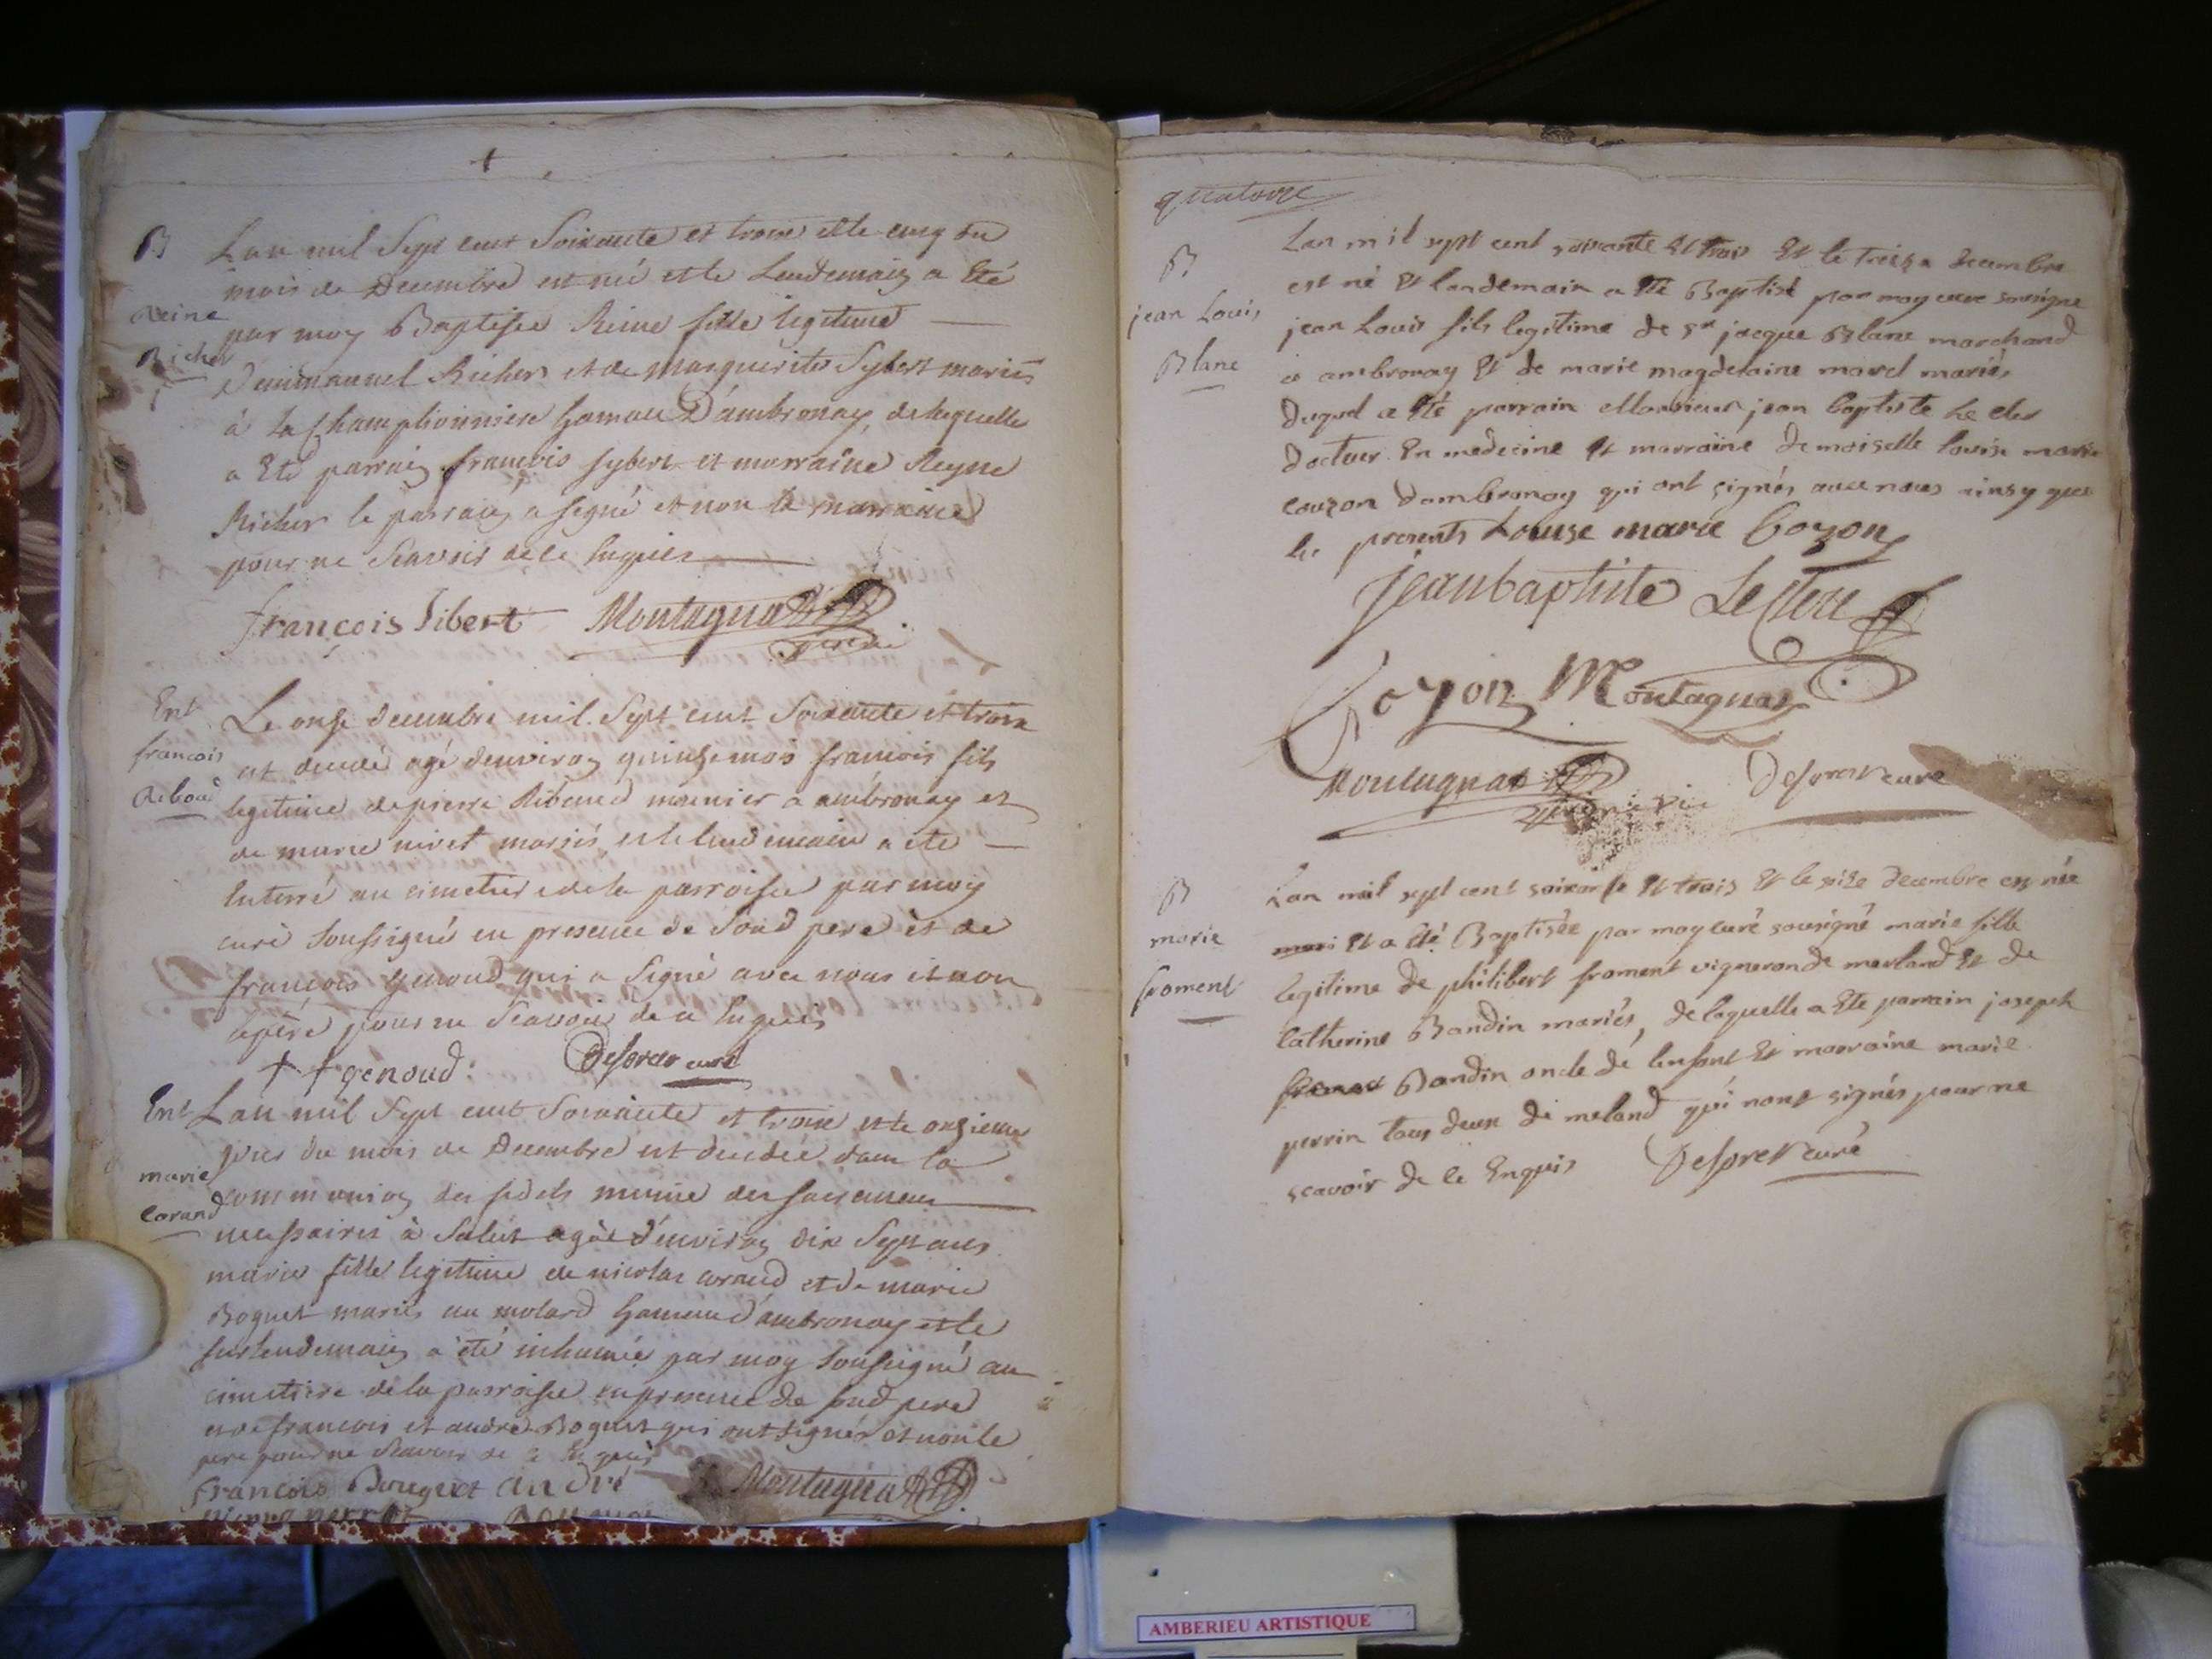 B
Reine
Richer
Lan mil Sept cent Soixante et trois et le cinq du
mois de Decembre est née et le Lendemain a Eté
par moy Baptisée Reine fille legitime
D'emmanuel Richer et de Marguerite Sybert mariés
à la Championniere hameau D'ambronay, de laquelle
a Eté parrain françois Sybert et marraine Reyne
Richer le parrain a signé et non la marraine
pour ne Scavoir de ce Enquis
François Sibert Montagnat
Ent
francois
Riboud
Le onse decembre mil Sept cent Soixante et trois
est decedé agé denviron quinse mois francois fils
legitime de pierre Riboud meunier a ambronay et
de marie nivet mariés, et le lendemain a eté
Enterré au cimetiere de la parroisse par moy
curé Soussigné en presence de Soud pere et de
françois genoud qui a Signé avec nous et non
le pere pour ne Scavoir de ce Enquis
genoud Desprer curé
Ent
marie
Corand
Lan mil Sept cent Soixante et trois et le onzieme
jour du mois de Decembre est decedée dans la
communion des fidels munie des Sacremens
necessaires à Salut agée d'environ dix Sept ans
marie fille legitime de nicolas Corand et de marie
Boguet mariés au molard hameau d'ambronay et le
Surlendemain a été inhumée par moy Soussigné au
cimetiere de la parroisse en presence de Soud pere
et de francois et andré Boguet qui ont signés et non le
pere pour ne Scavoir de ce Enquis
françois Bouguet andré Montagnat
quatorze
B
jean Louis
Blanc
Lan mil sept cent soixante Et trois Et le treize decembre
est né Et landemain a Eté Baptisé par moy curé sousigné
jean Louis fils legitime de Sr jacque Blanc marchand
a ambronay Et de marie magdelaine morel mariés
duquel a Eté parrain Monsieur jean baptiste Le clerc
docteur En medecine Et marraine demoiselle louise marie
cozon dambronay qui ont signés avec nous ainsy que
les presents Louise marie Cozon
jean baptiste Leclerc
Cozon Montagnat
Montagnat Desprer curé
B
marie
froment
Lan mil sept cent soixante Et trois Et le size decembre est née
Et a Eté Baptisée par moy curé sousigné marie fille
legitime de philibert froment vigneron de merland Et de
Catherine Bandin mariés, de laquelle a Eté parrain joseph
Bandin oncle de lenfant Et marraine marie
perrin tous deux de meland qui nont signés pour ne
scavoir de ce Enquis Desprer curé
AMBERIEU ARTISTIQUE